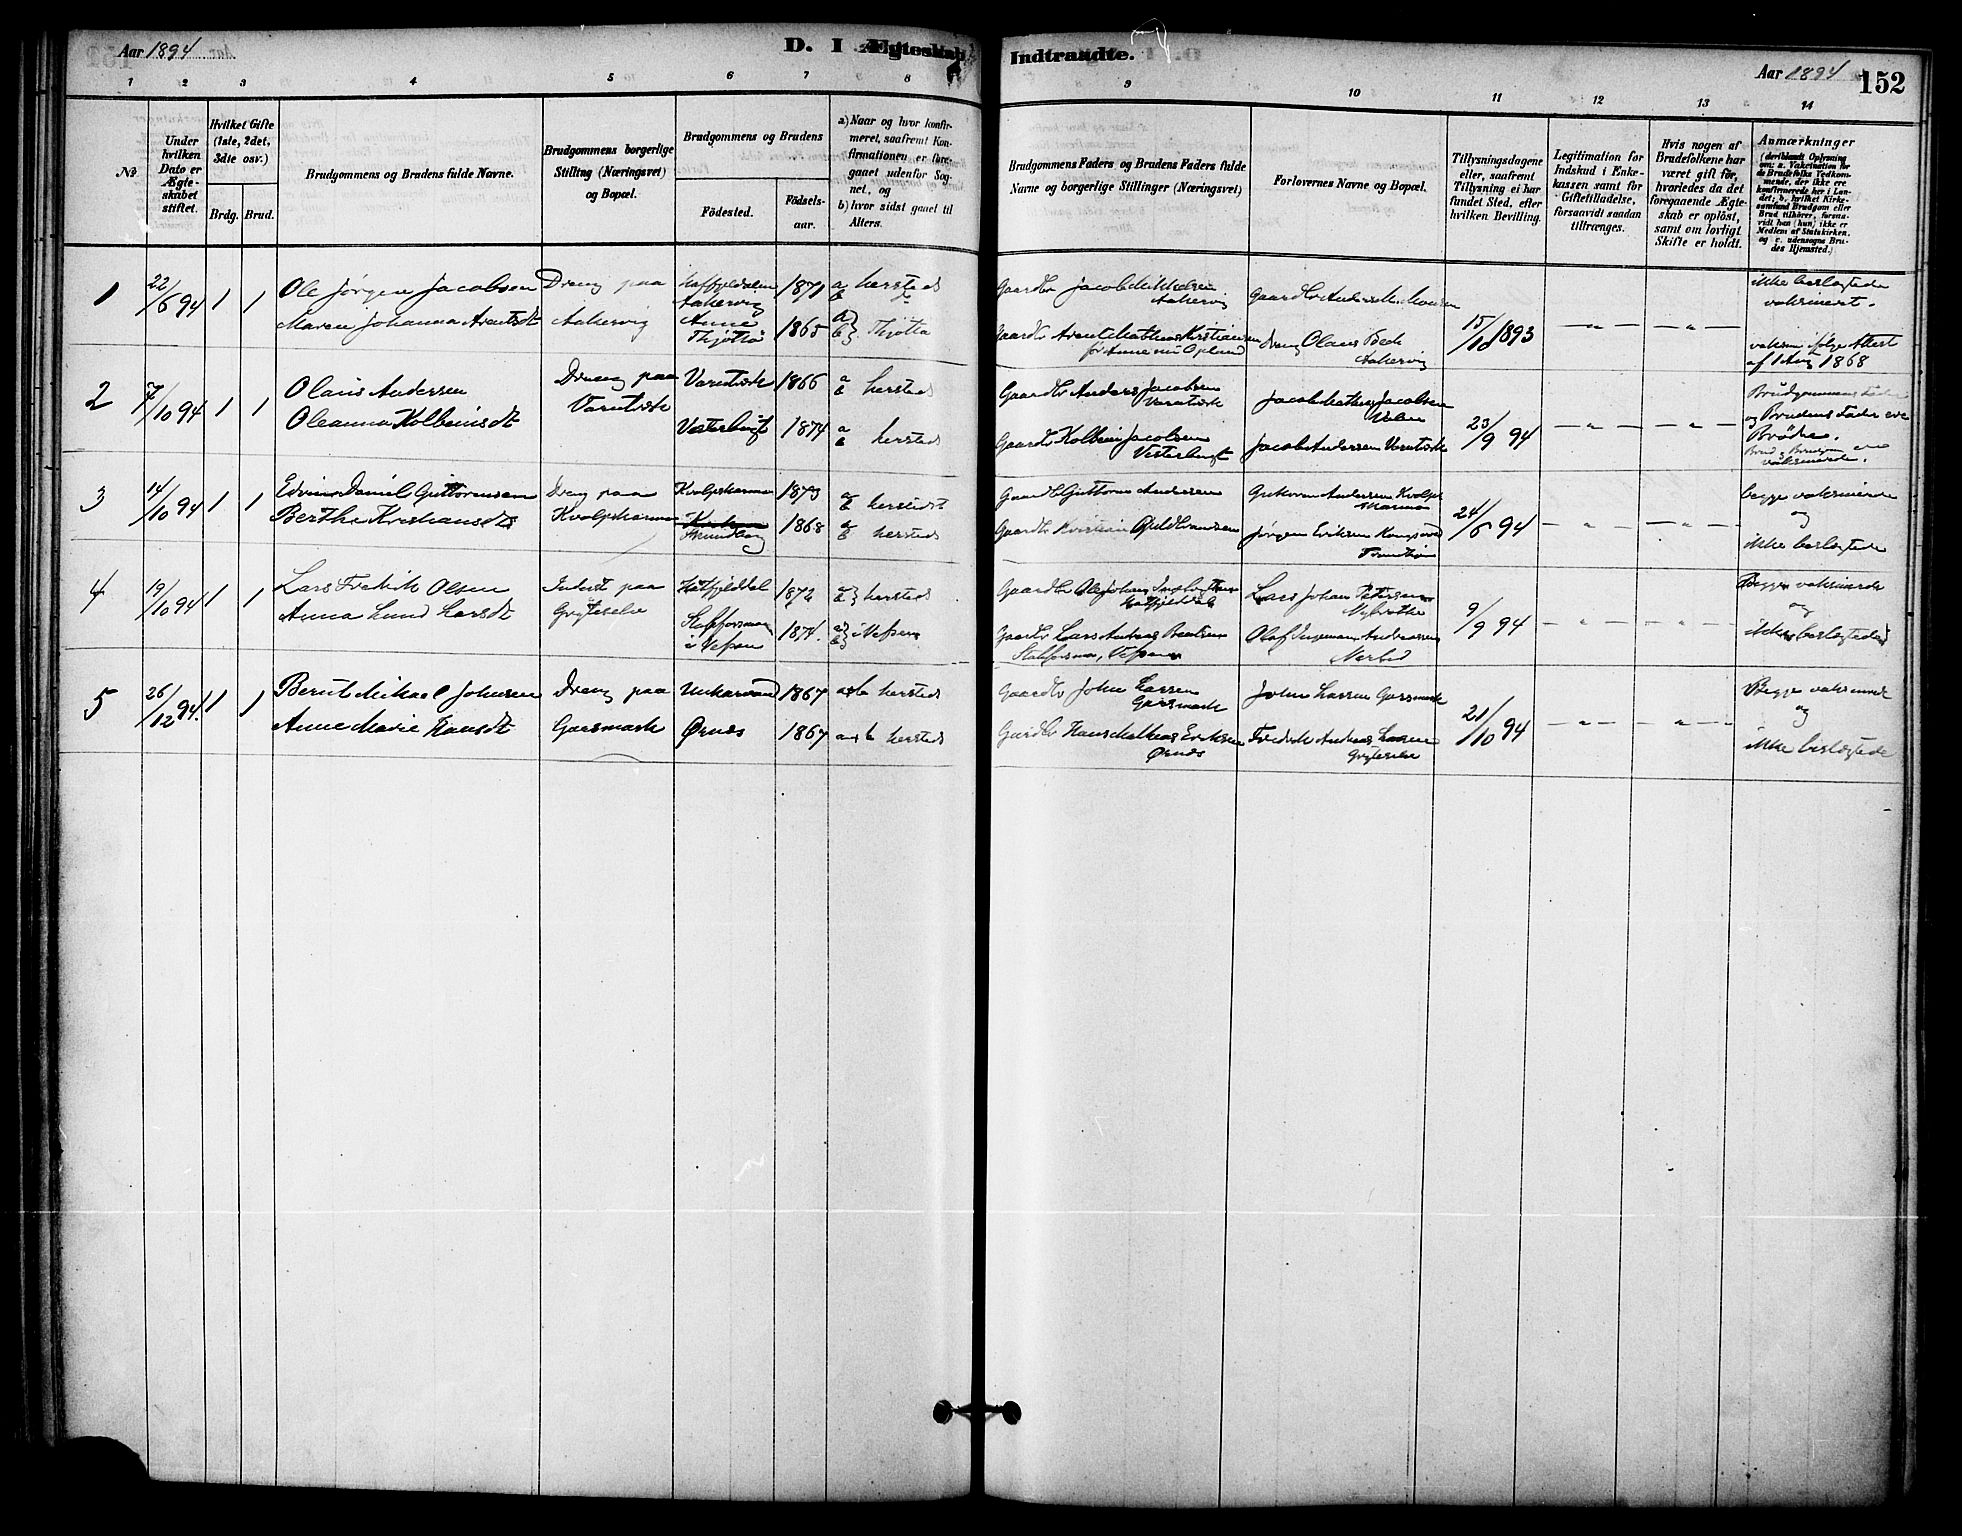 Aar 1894
D. I Ægteskab
Indtraadte.
Aar 1894
152
1 2 3 4 5 6 7 8
9 10 11 12 13 14
No
Under hvilken Dato er Ægte-skabet stiftet.
Hvilket Gifte (1ste, 2det, 3die osv.)
Brdg. Brud.
Brudgommens og Brudens fulde Navne.
Brudgommens borgerlige Stilling (Næringsvei) og Bopæl.
Brudgommens og Brudens
Födested.
Födsels-aar.
a) Naar og hvor konfir-meret, saafremt Kon-firmationen er fore-gaaet udenfor Sog-net, og
b) hvor sidst gaaet til Alters.
Brudgommens Faders og Brudens Faders fulde Navne og borgerlige Stillinger (Næringsvei)
Forlovernes Navne og Bopæl.
Tillysningsdagene eller, saafremt Tillysning ei har fundet Sted, efter hvilken Bevilling.
Legitimation for Indskud i Enke-kassen samt for Giftetilladelse, forsaavidt saadan tiltrænges.
Hvis nogen af Brudefolkene har været gift før, hvorledes da det foregaaende Ægte-skab er oplöst, samt om lovligt Skifte er holdt.
Anmærkninger
(deriblandt Oplysning om: a. Vakcination for de Brudefolks Vedkom-mende, der ikke ere konfirmerede her i Lan-det; b. hvilket Kirke-samfund Brudgom eller Brud tilhører, forsaa-vidt han (hun) ikke er Medlem af Statskirken, og c. udensogns Bru-des Hjemsted.)
1
22/6 94
1 1
Ole Jørgen Jacobsen
Maren Johanna Arntsdt
Dreng paa
Aakervig
Hatfjelddalen
Aakervig
Thjøtta
1871
1865
a b hersteds
a b } Thjøtta
Gaardbr Jacob Mikkelsen
Aakervig
Gaardbr Arent Mathias Kristiansen
Dreng Olaus Beck
Aakervig
15/10 1893
— " —
— " —
ikke beslægtede
vaksineret.
vaksin ifølge Attest
af 1 Aug 1868
2
7/10 94
1 1
Olaus Andersen
Oleanna Kolbeinsdt
Dreng paa
Varntræsk
Varntræsk
Vesterbugt
1866
1874
a b hersteds
a b hersteds
Gaardbr Anders Jacobsen
Varntræsk
Gaardbr Kolbein Jacobsen
Vesterbugt
Jacob Mathias Jacobsen
Jacob Andersen Varntræsk
23/9 94
— " —
— " —
Brudgommens Fader
og Brudens Fader ere
Brødre.
Brud og Brudgom ere
vaksinerede.
3
14/10 94
1 1
Edvin Daniel Guttormsen
Berthe Kristiansdt
Dreng paa
Kvalpskarmo
Kvalpskarmo
1873
1868
a b hersteds
a b hersteds
Gaardbr Guttorm Andersen
Gaardbr Kristian
Guttorm Andersen Kvalp-
skarmo
Jørgen Eriksen
24/6 94
— " —
— " —
begge vaksinerede
og
ikke beslægtede
4
19/10 94
1 1
Lars Fredrik Olsen
Anna Lund Larsdt
Inderst paa
Gryteselv
Hatfjelddal
i Vefsen
1872
1874.
a b } hersteds
a b } i Vefsen
Gaardbr Ole Johan
Hatfjelddal
Gaardbr Lars Andreas
Vefsen
Lars Johan Petersen
Olaf Ingeman Andreassen
9/9 94
— " —
— " —
Begge vaksinerede
og
ikke beslægtede
5
26/12 94.
1 1
Berut Mikael Johnsen
Anne Marie Hansdt
Dreng paa
Garsmark
Unkervand
Ørnæs
1867
1867
a & b hersteds
a & b hersteds
Gaardbr John Larsen
Garsmark
Gaardbr Hans Mathias Eriksen
Ørnæs
John Larsen Garsmark
Fredrik Andreas Larsen
Gryteselv
21/10 94
— " —
— " —
Begge vaksinerede
og
ikke beslægtede